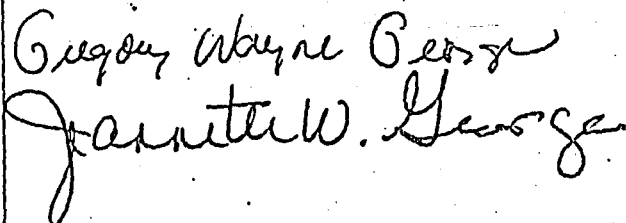 Gregory Wayne George
Jeannette W. George